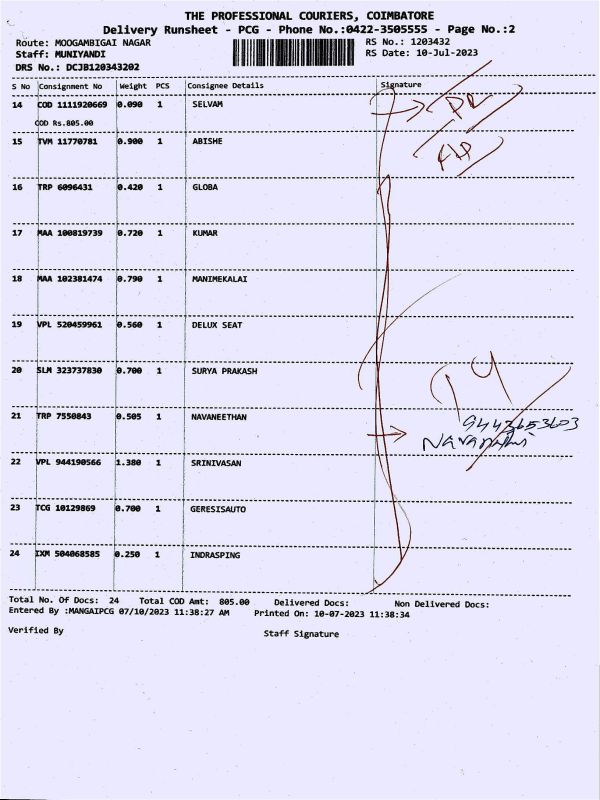 THE PROFESSIONAL COURIERS, COIMBATORE
Delivery Runsheet - PCG - Phone No.:0422-3505555 - Page No.:2
Route: MOOGAMBIGAI NAGAR RS No.: 1203432
Staff: MUNIYANDI RS Date: 10-Jul-2023
DRS No.: DCJB120343202
S No Consignment No Weight PCS Consignee Details Signature
14 COD 1111920669 0.090 1 SELVAM
COD Rs.805.00
15 TVM 11770781 0.900 1 ABISHE
16 TRP 6096431 0.420 1 GLOBA
17 MAA 100819739 0.720 1 KUMAR
18 MAA 102381474 0.790 1 MANIMEKALAI
19 VPL 520459961 0.560 1 DELUX SEAT
20 SLM 323737830 0.700 1 SURYA PRAKASH
21 TRP 7550843 0.505 1 NAVANEETHAN
22 VPL 944190566 1.380 1 SRINIVASAN
23 TCG 10129869 0.700 1 GERESISAUTO
24 IXM 504068585 0.250 1 INDRASPING
Total No. Of Docs: 24 Total COD Amt: 805.00 Delivered Docs: Non Delivered Docs:
Entered By :MANGAIPCG 07/10/2023 11:38:27 AM Printed On: 10-07-2023 11:38:34
Verified By Staff Signature